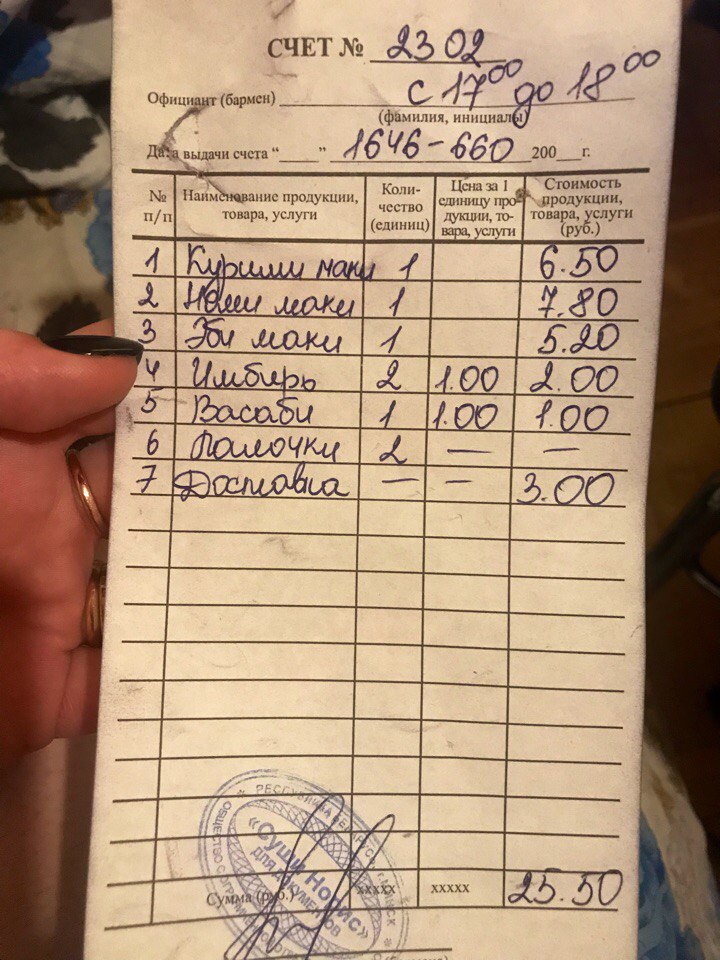 СЧЕТ № 2302
с 17 00 до 18 00
Официант (бармен)
(фамилия, инициалы)
Дата выдачи счета “ ” 1646-660 200 г.
№ п/п Наименование продукции, товара, услуги Коли-чество (единиц) Цена за 1 единицу про-дукции, то-вара, услуги Стоимость продукции, товара, услуги (руб.)
1 маки 1 6.50
2 маки 1 7.80
3 Эби маки 1 5.20
4 Имбирь 2 1.00 2.00
5 Васаби 1 1.00 1.00
6 Палочки 2 — —
7 Доставка — — 3.00
Сумма (руб.) xxxxx xxxxx 25.50
РЕСПУБЛИКА БЕЛАРУСЬ МИНСК
«Суши Норис»
ДЛЯ ДОКУМЕНТОВ